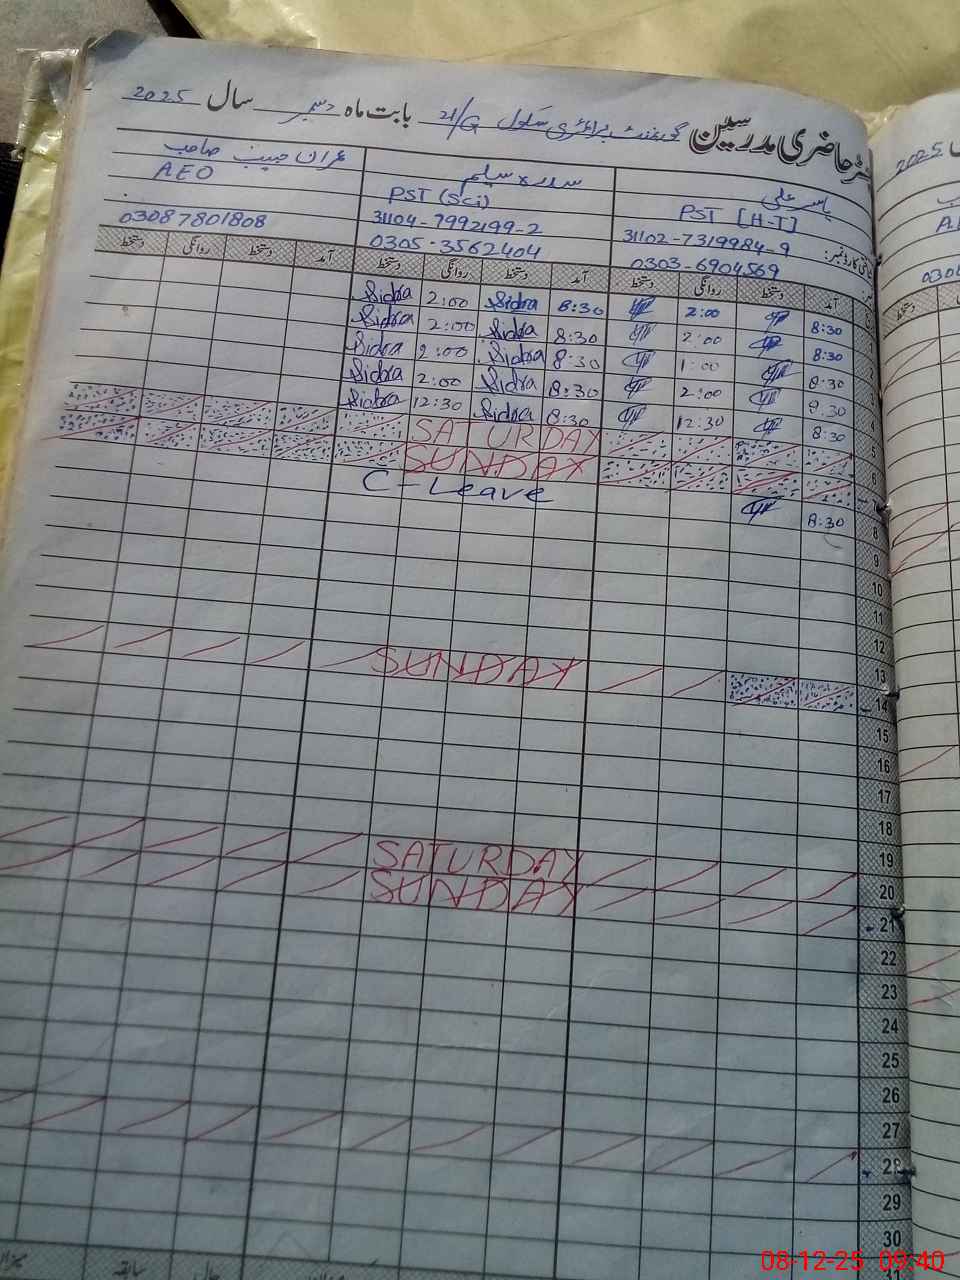 رجسٹر حاضری مدرسین گورنمنٹ پرائمری سکول 21/G بابت ماہ دسمبر سال 2025
یاسر علی سدرہ سلیم عمران حبیب صاحب
PST [H-T] PST (Sci) AEO
31102-7319984-9 31104-7992199-2
0303-6904569 0305-3562404 03087801808
آمد دستخط روانگی دستخط آمد دستخط روانگی دستخط آمد دستخط روانگی دستخط
8:30 2:00 8:30 Sidra 2:00 Sidra
8:30 2:00 8:30 Sidra 2:00 Sidra
8:30 1:00 8:30 Sidra 2:00 Sidra
8:30 2:00 8:30 Sidra 2:00 Sidra
4 8:30 12:30 8:30 Sidra 12:30 Sidra
5 SATURDAY
6 SUNDAY
7 8:30 C-Leave
8
9
10
11
12
13 SUNDAY
14
15
16
17
18
19 SATURDAY
20 SUNDAY
21
22
23
24
25
26
27
28
29
30
31
08-12-25 09:40